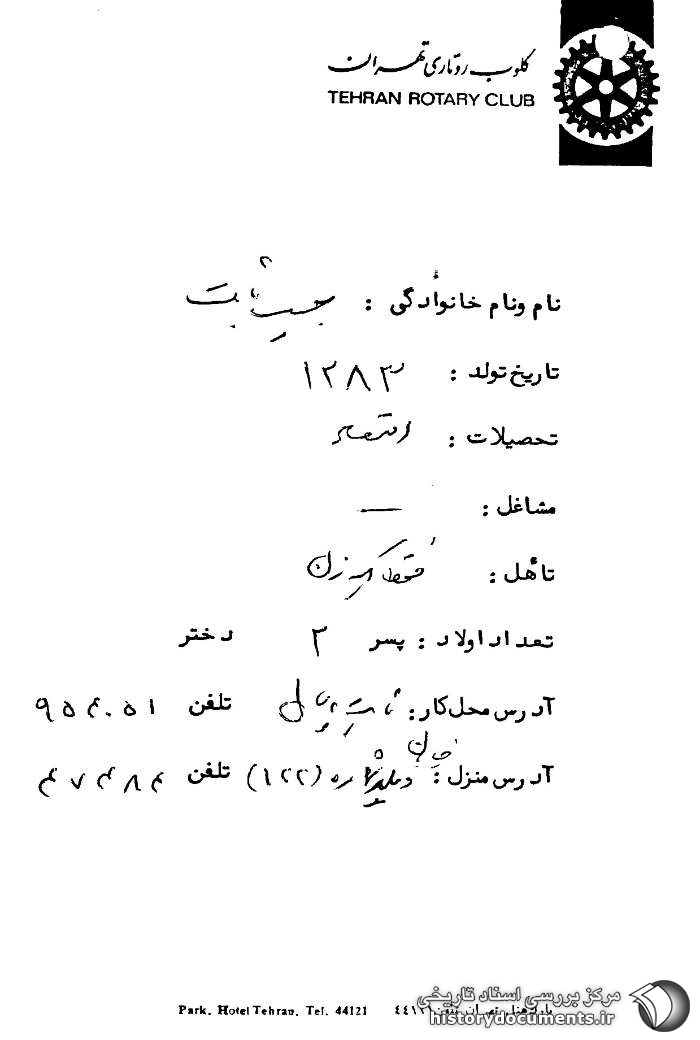 کلوب روتاری تهران
TEHRAN ROTARY CLUB
نام و نام خانوادگی : حبیب ثابت
تاریخ تولد : ۱۲۸۳
تحصیلات :
مشاغل : —
تأهل : فقط یک زن
تعداد اولاد : پسر ۲ دختر
آدرس محل کار : ثابت پاسال تلفن ۹۵۴۰۵۱
آدرس منزل : خیابان (۱۲۲) تلفن ۴۷۴۸۴
Park. Hotel Tehran. Tel. 44121
مرکز بررسی اسناد تاریخی
historydocuments.ir